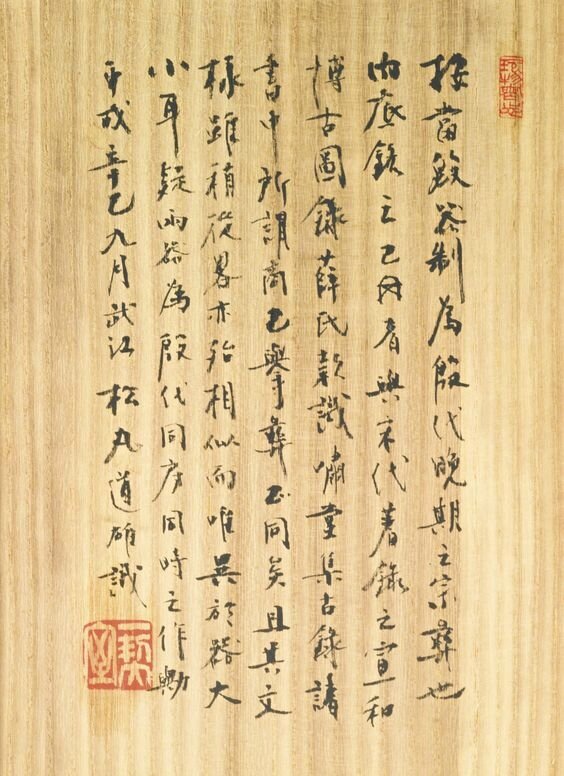 按當毀器制為殷代晚期之宗彝也
內底銘之己冉者與宋代著錄之宣和
博古圖錄薛氏款識嘯堂集古錄諸
書中所謂商己舉彝正同矣且其文
樣雖稍從畧亦殆相似而唯異於器大
小耳疑兩器為殷代同房同時之作歟
平成辛巳九月武江松丸道雄識